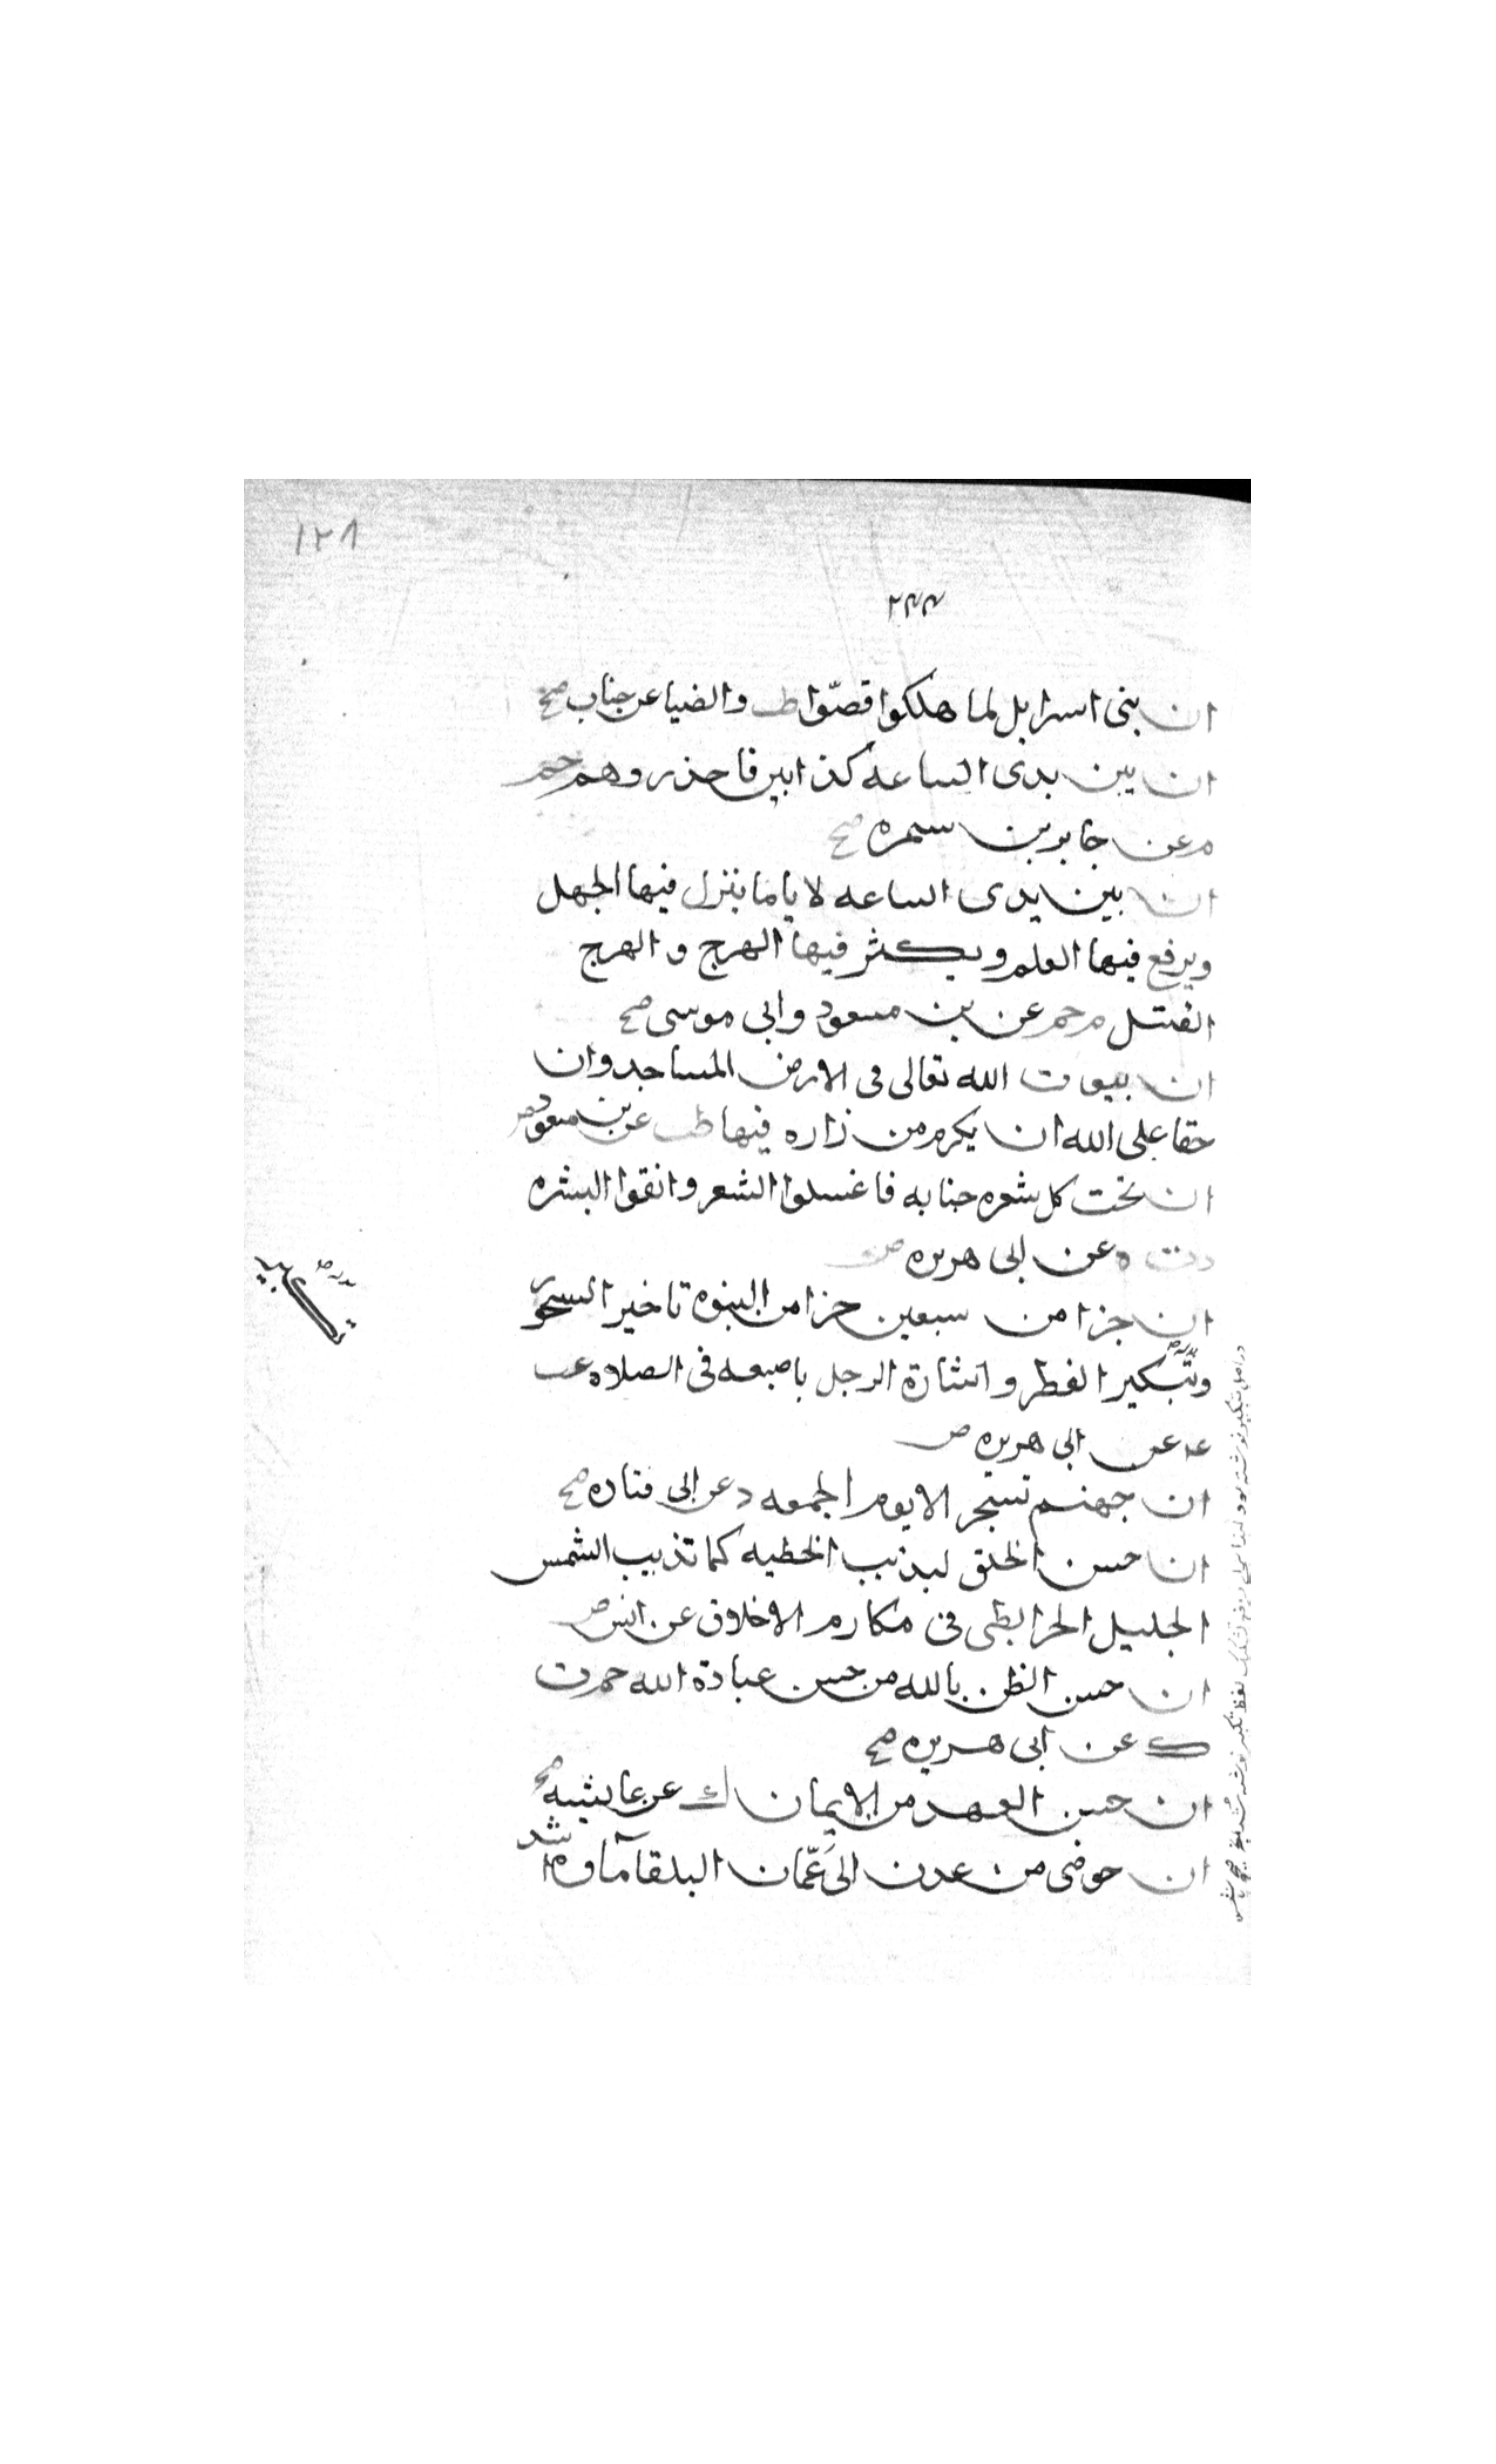 ١٢٨
٢٤٤
ان بنى اسرايل لما هلكوا قصّوا طب والضيا عن جناب صح
ان بين يدى الساعه كذابين فاحذروهم حم
م عن جابر بن سمره صح
ان بين يدى الساعه لاياما ينزل فيها الجهل
ويرفع فيها العلم ويكثر فيها الهرج والهرج
القتل م حم عن بن مسعود وابى موسى صح
ان بيوت الله تعالى فى الارض المساجد وان
حقا على الله ان يكرم من زاره فيها طب عن بن مسعود
ان تحت كل شعره جنابه فاغسلوا الشعر وانقوا البشره
دت ه عن ابى هريره ض
ان جزا من سبعين جزا من النبوه تاخير السحور
وتبكير الفطر واشارة الرجل باصبعه فى الصلاه عب
عد عن ابى هريره ض
ان جهنم تسجر الا يوم الجمعه د عن ابى قتاده صح
ان حسن الخلق ليذيب الخطيه كما تذيب الشمس
الجليل الخرايطى فى مكارم الاخلاق عن انس ض
ان حسن الظن بالله من حسن عبادة الله حم ت
ك عن ابى هريره صح
ان حسن العهد من الايمان ك عن عايشه صح
ان حوضى من عدن الى عَمّان البلقا ماوه اشد